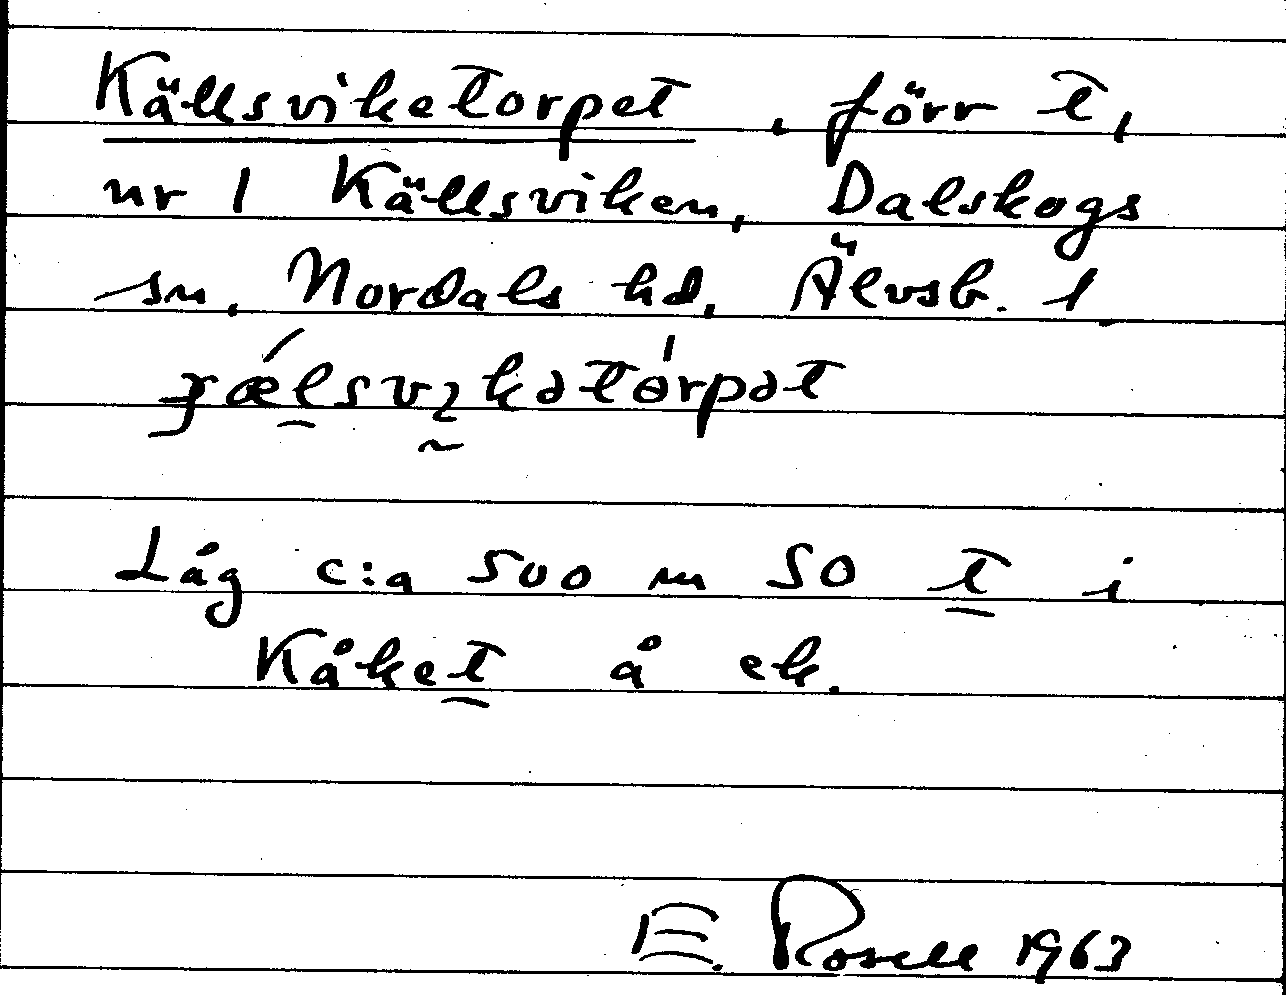 Källsviketorpet, förr t,
nr 1 Källsviken, Dalskogs
sn, Nordals hd, Älvsb. l
Låg c:a 500 m SO t i
Kåket å ek.
E. Rosell 1963